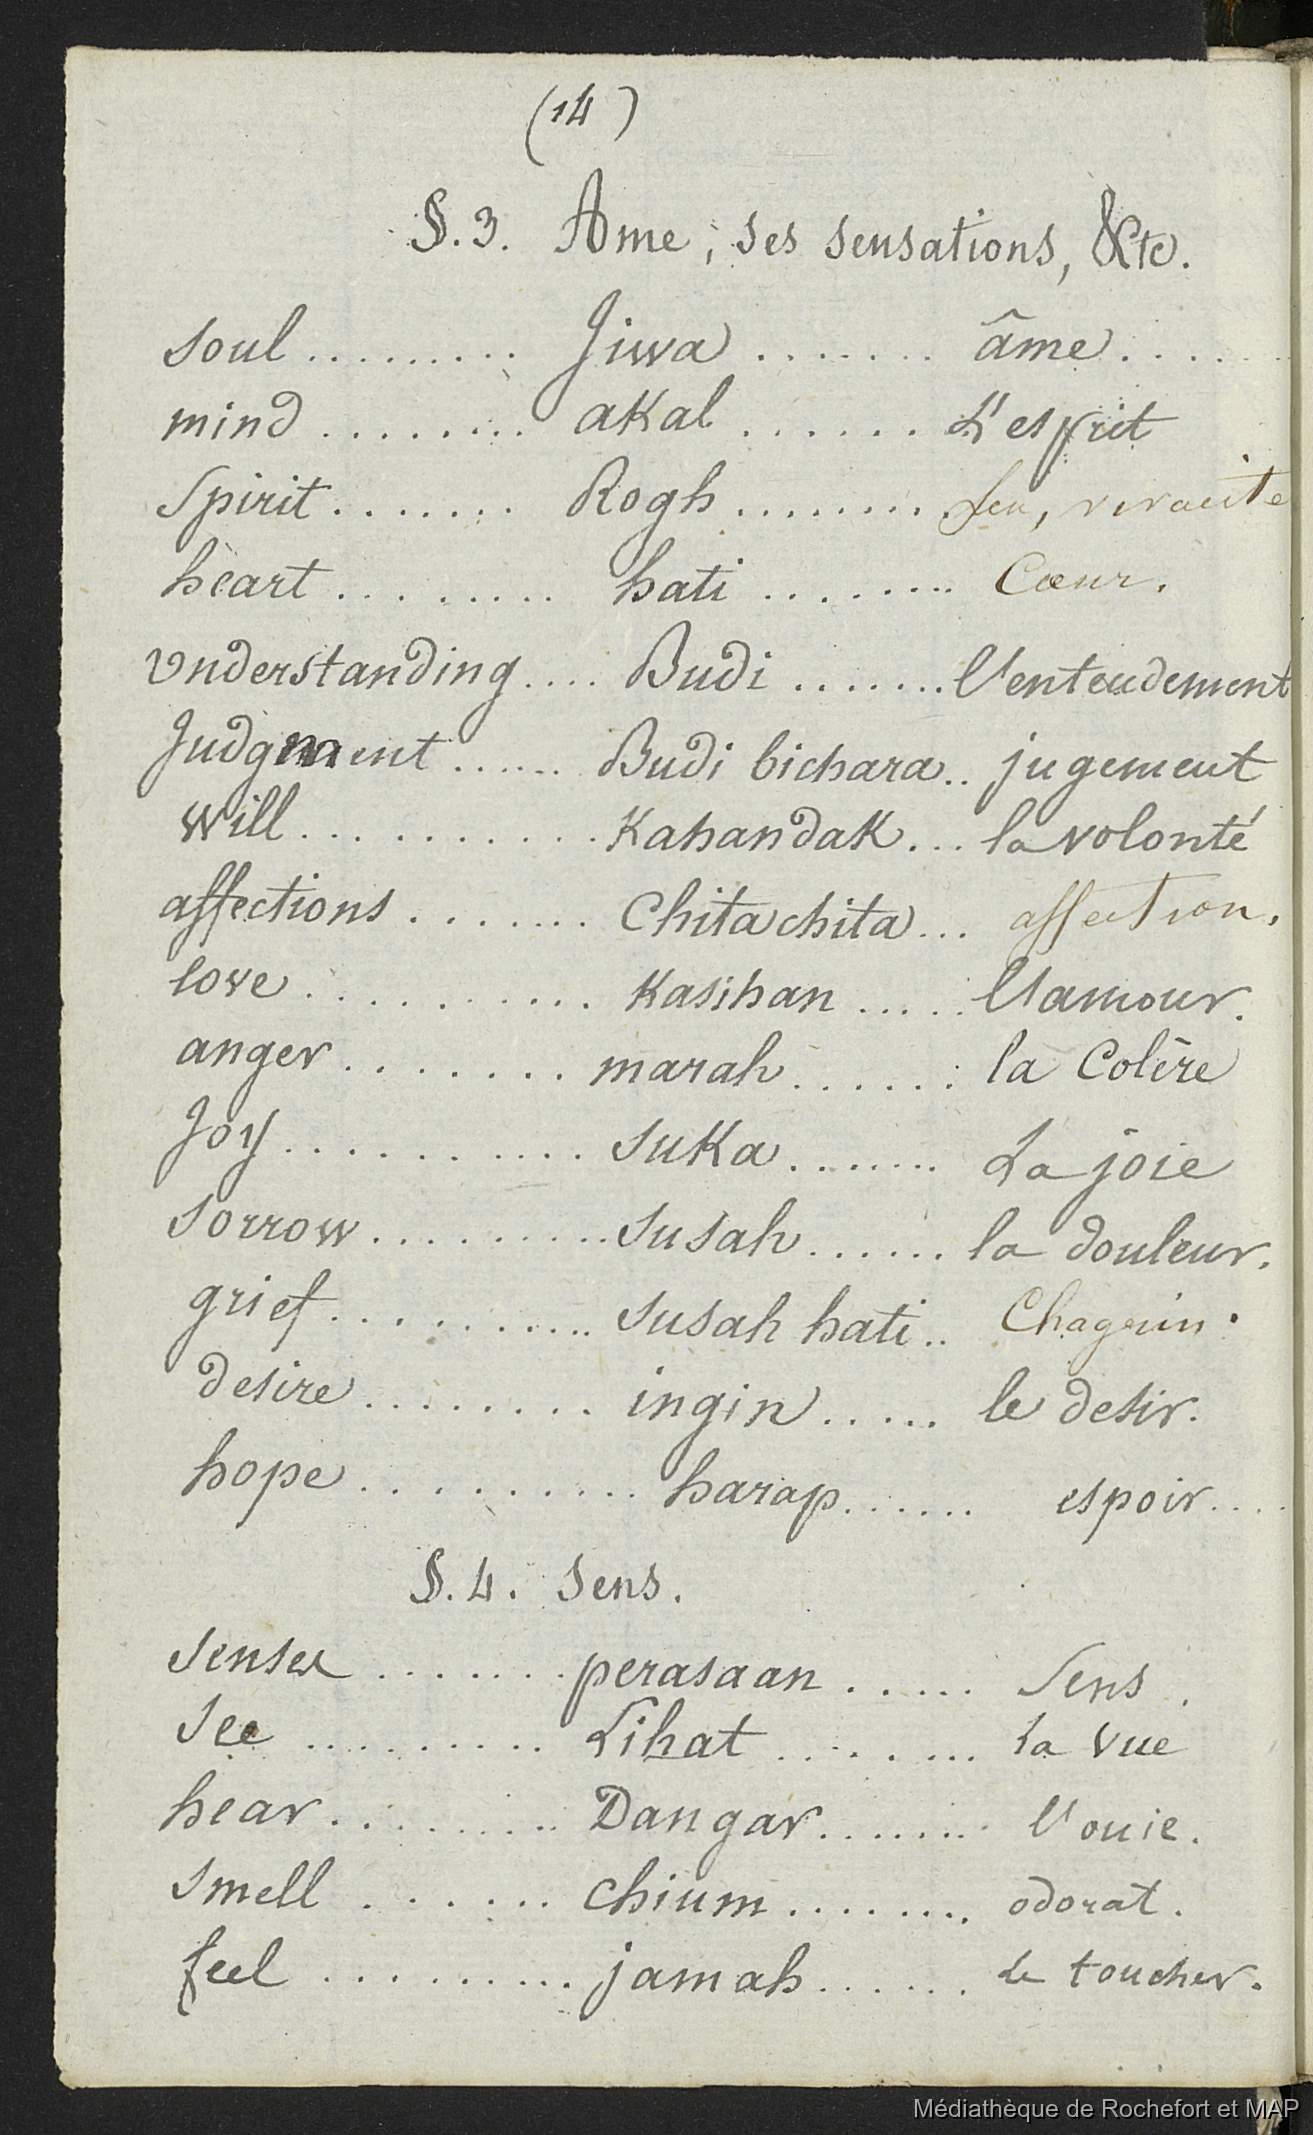 (14)
§. 3. Ame, ses sensations, &tc.
soul ......... Jiwa ....... âme .....
mind ........ aKal ....... L'esprit
Spirit ....... Rogh ........ feu, vivacite
heart ......... hati ........ Cœur.
Understanding .... Budi ....... l'entendement
Judgment ...... Budi bichara .. jugement
Will .......... Kahandak ... la volonté
affections ....... Chita chita ... affection.
love .......... Kasihan ..... l'amour.
anger ........ marah ...... la Colère
Joy .......... suKa ....... La joie
sorrow ......... susah ...... la douleur.
grief .......... susah hati .. Chagrin.
desire ........ ingin ..... le desir.
hope .......... harap ...... espoir ....
§. 4. Sens.
Senses ....... perasaan ..... Sens.
See ......... Lihat ........ la vue
hear ........ Dangar ....... l'ouie.
Smell ...... chium ........ odorat.
feel ......... jamah ...... le toucher.
Médiathèque de Rochefort et MAP